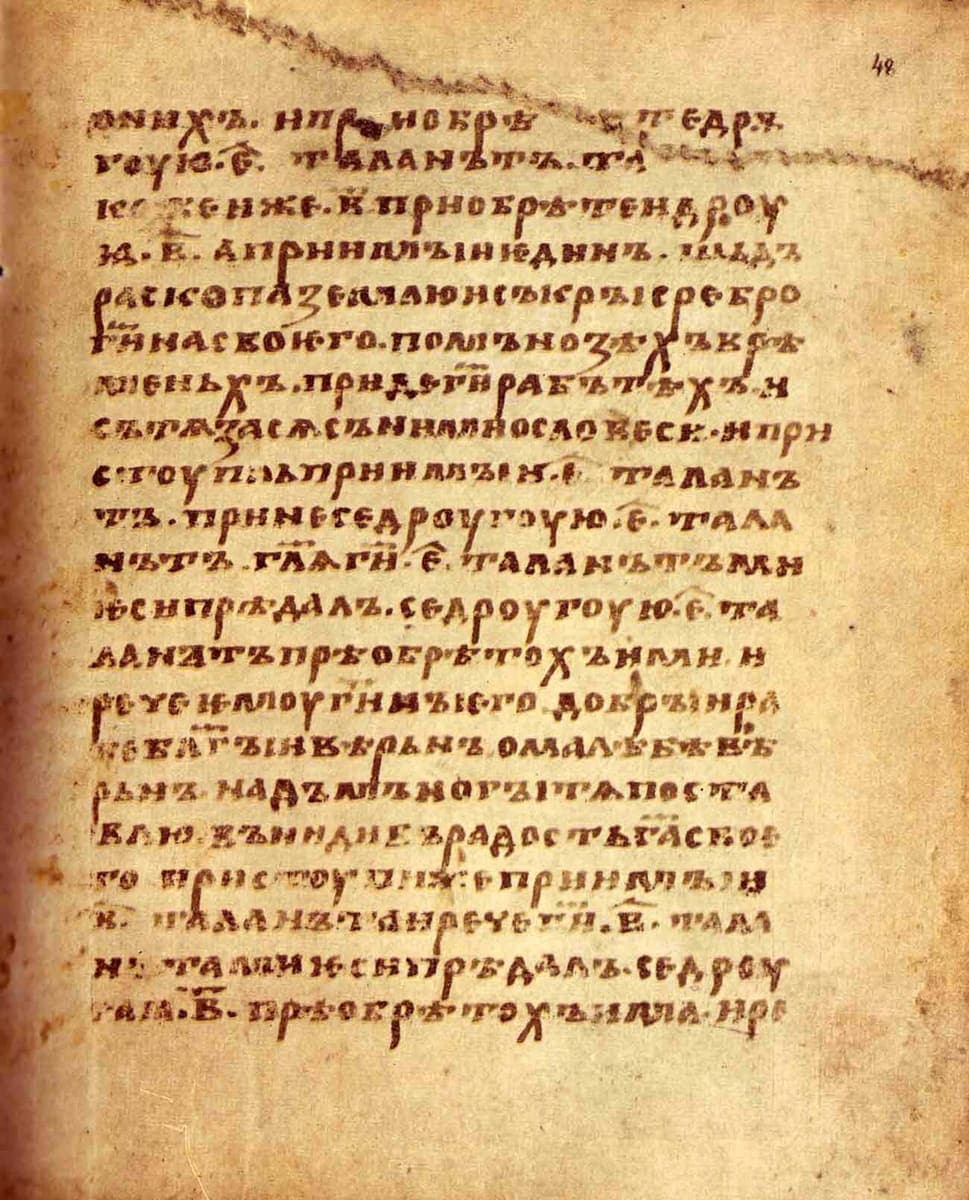 48
ꙩнихъ. и пр обрѣ те др
гоую.е҃. таланътъ.та
же иже.в҃ приобрѣте и дроу
ꙗ.в҃. а приимъи ѥдинъ. шьдъ
раскопа землю и съкры сребро
г҃и на своѥго.по мънозѣхъ врѣ
меньхъ.приде г҃и рабъ тѣхъ.и
сътѧза сѧ съ ними о словеси.и при
стоупь приимъи.е҃ таланъ
тъ.принесе дроугоую.е҃.тала
нътъ г҃лѧ г҃и.е҃.таланътъ ми
ѥси прѣдалъ.се дроугоую.е҃.та
ланътъ прѣобрѣтохъ ими.и
рече ѥмоу г҃инъ ѥго добрыи ра
бе бл҃гыи вѣрьнъ о малѣ бѣ вѣ
рьнъ надъ мъногы тѧ поста
влю.въниди въ радость г҃а своѥ
го пристоупи же приимъи
в҃. таланъта и рече г҃и.в҃. тала
н та ми ѥси прѣдалъ.се дроу
гаꙗ.в҃.прѣобрѣтохъ има.и ре